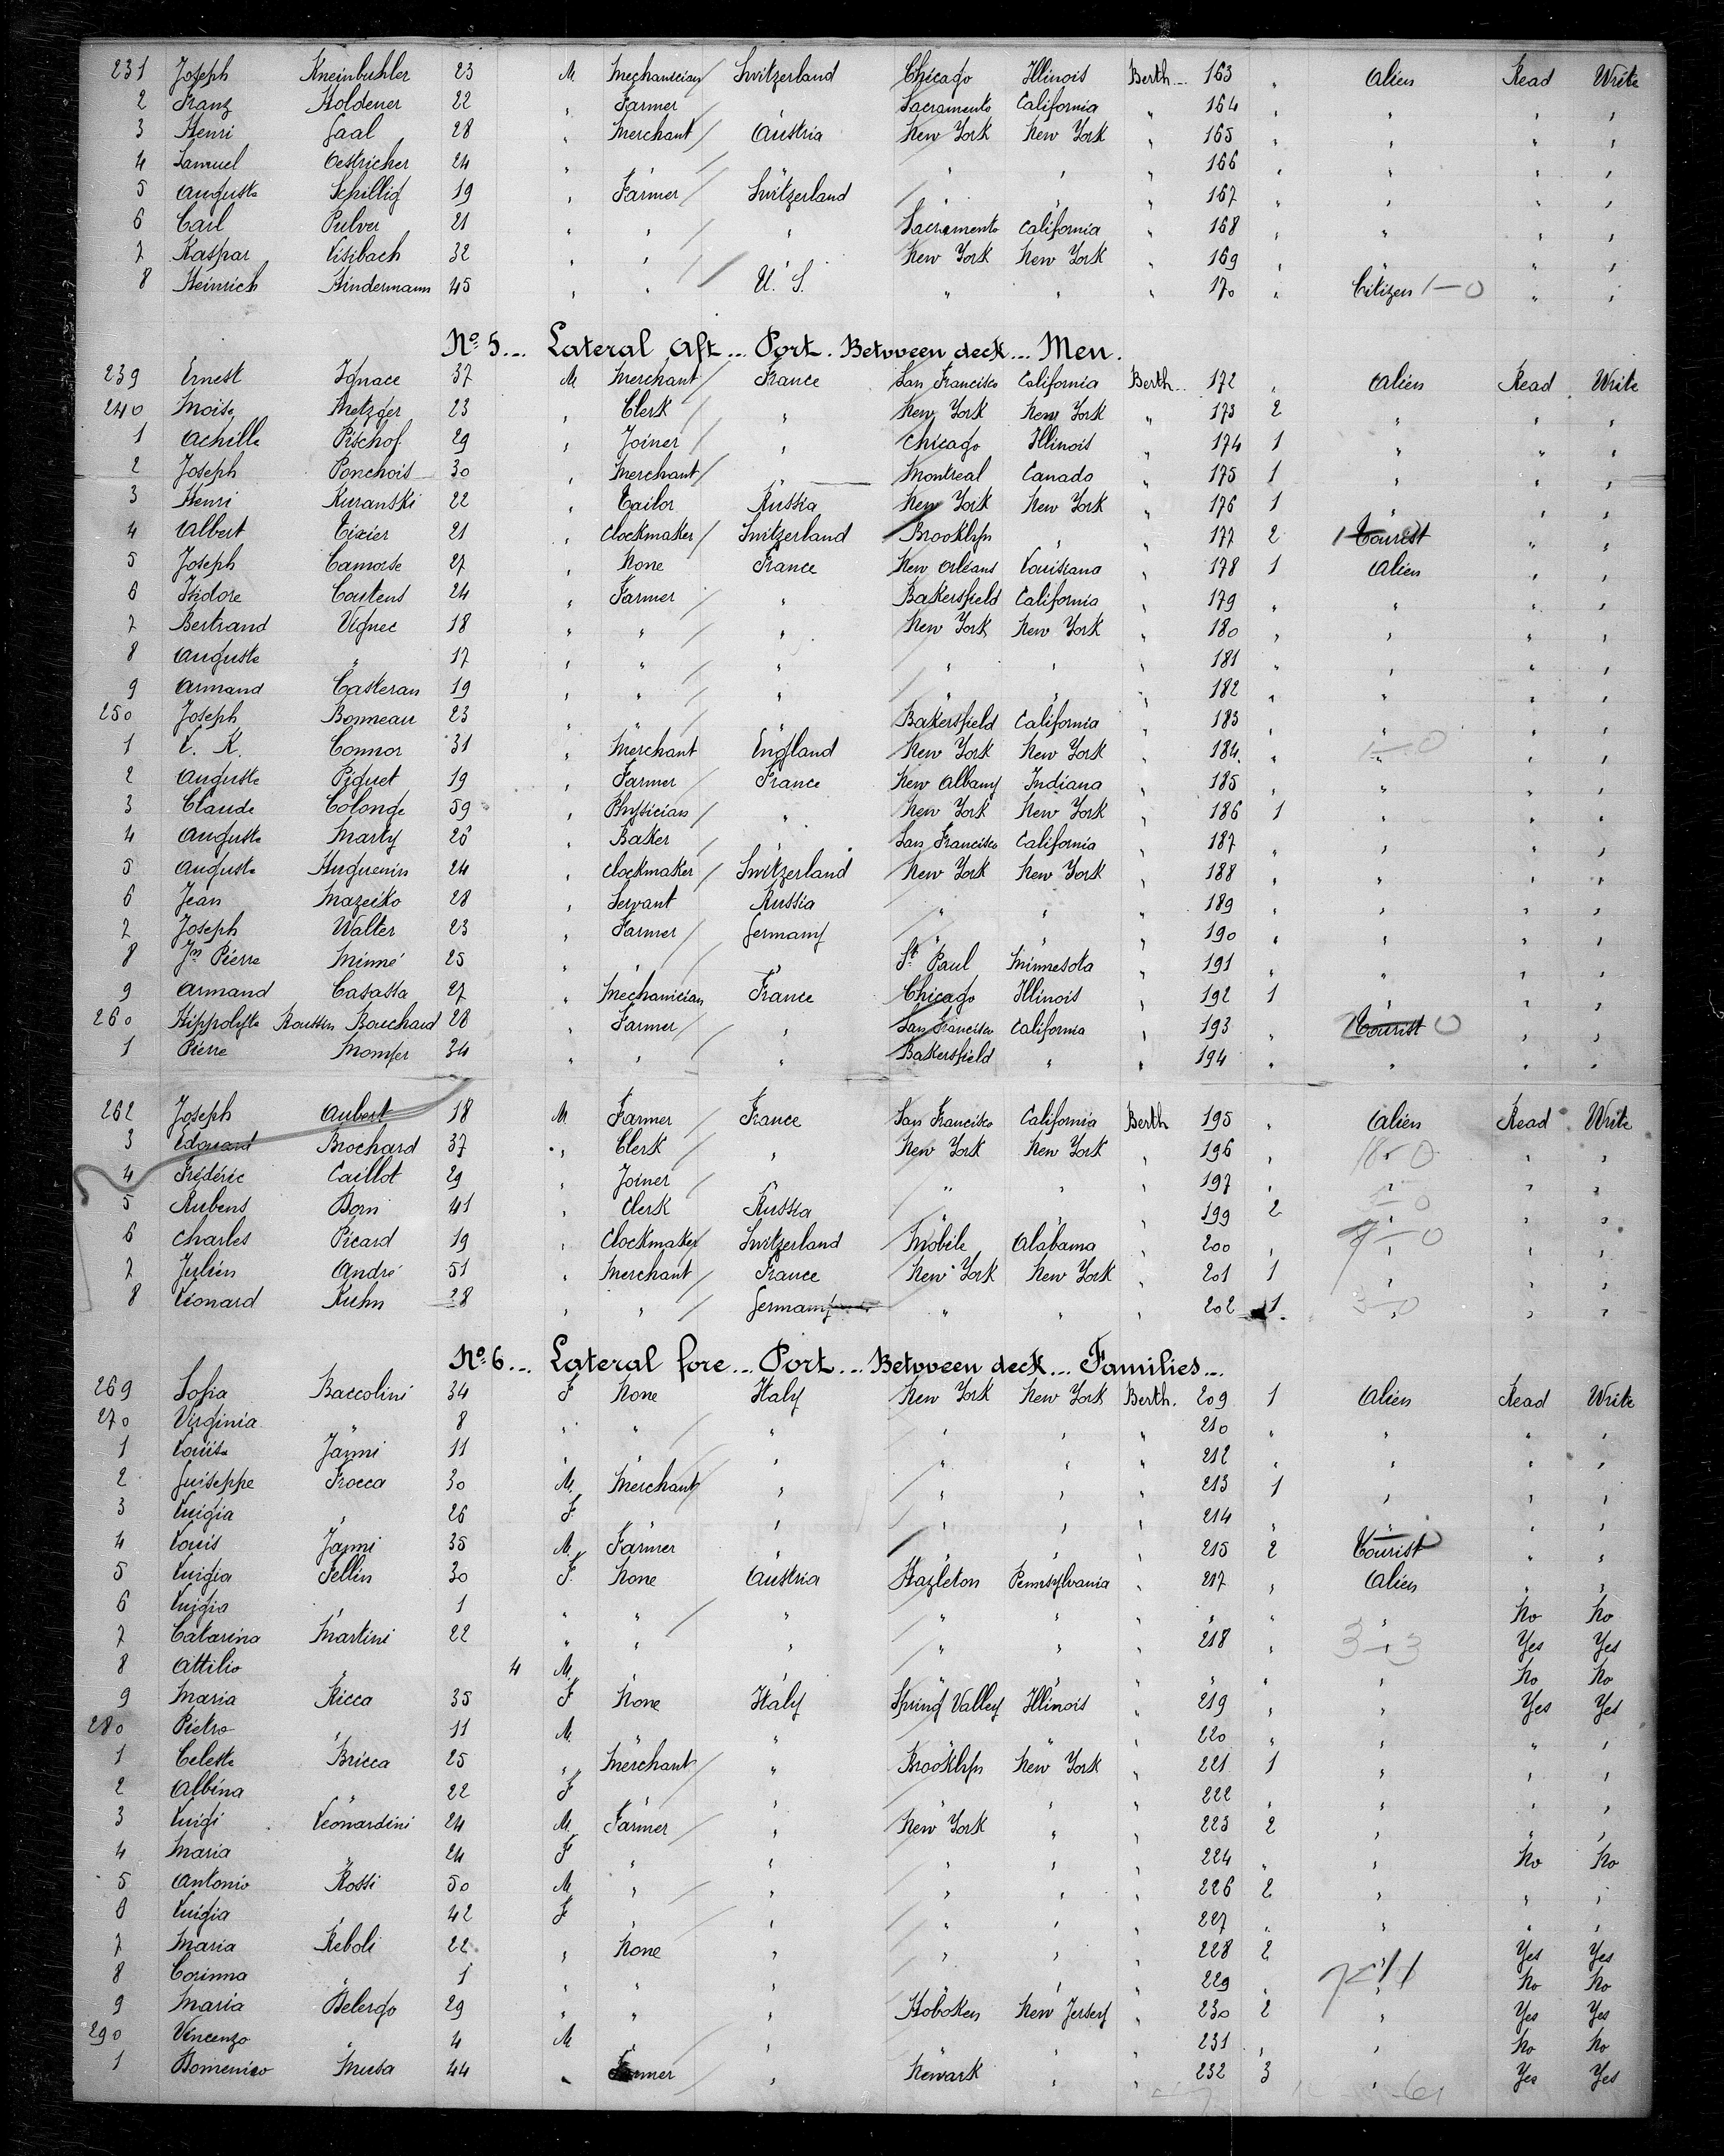 231 Joseph Kneinbuhler 23 M Mechanician Switzerland Chicago Illinois Berth 163 " Alien Read Write
2 Franz Holdener 22 " Farmer " Sacramento California " 164 " " " "
3 Henri Gaal 28 " Merchant Austria New York New York " 165 " " " "
4 Samuel Oestricher 24 " " " " " " 166 " " " "
5 Auguste Schillig 19 " Farmer Switzerland " " " 167 " " " "
6 Carl Pulver 21 " " " Sacramento California " 168 " " " "
7 Kaspar Visibach 32 " " " New York New York " 169 " " " "
8 Heinrich Hindermann 45 " " U. S. " " " 170 " Citizen 1-0 " "
No 5... Lateral Aft... Port. Between deck... Men.
239 Ernest Ignace 37 M Merchant France San Francisco California Berth 172 " Alien Read Write
240 Moise Metzger 23 " Clerk " New York New York " 173 2 " " "
1 Achille Pischof 29 " Joiner " Chicago Illinois " 174 1 " " "
2 Joseph Ponchois 30 " Merchant " Montreal Canado " 175 1 " " "
3 Henri Kuranski 22 " Tailor Russia New York New York " 176 1 " " "
4 Albert Tixier 21 " Clockmaker Switzerland Brooklyn " " 177 2 Tourist " "
5 Joseph Camorse 27 " None France New Orleans Louisiana " 178 1 Alien " "
6 Isidore Coustens 24 " Farmer " Bakersfield California " 179 " " " "
7 Bertrand Vignec 18 " " " New York New York " 180 " " " "
8 Auguste " 17 " " " " " " 181 " " " "
9 Armand Casteran 19 " " " " " " 182 " " " "
250 Joseph Bonneau 23 " " " Bakersfield California " 183 " " " "
1 V. K. Connor 31 " Merchant England New York New York " 184 " " " "
2 Auguste Piguet 19 " Farmer France New Albany Indiana " 185 " " " "
3 Claude Colonge 59 " Physician " New York New York " 186 1 " " "
4 Auguste Marty 25 " Baker " San Francisco California " 187 " " " "
5 Auguste Huguenin 24 " Clockmaker Switzerland New York New York " 188 " " " "
6 Jean Mazeiko 28 " Servant Russia " " " 189 " " " "
7 Joseph Walter 23 " Farmer Germany " " " 190 " " " "
8 Jn Pierre Minné 25 " " " St Paul Minnesota " 191 " " " "
9 Armand Casassa 27 " Mechanician France Chicago Illinois " 192 1 " " "
260 Hippolyte Roussin Bouchard 28 " Farmer " San Francisco California " 193 " Tourist 0 " "
1 Pierre Momfer 34 " " " Bakersfield " " 194 " " " "
262 Joseph Aubert 18 M Farmer France San Francisco California Berth 195 " Alien Read Write
3 Edouard Brochard 37 " Clerk " New York New York " 196 " " " "
4 Frédéric Caillot 29 " Joiner " " " " 197 " " " "
5 Rubens Born 41 " Clerk Russia " " " 199 2 " " "
6 Charles Picard 19 " Clockmaker Switzerland Mobile Alabama " 200 " " " "
7 Julien André 51 " Merchant France New York New York " 201 1 " " "
8 Léonard Kuhn 28 " " Germany " " " 202 1 3-0 " "
No 6... Lateral fore... Port... Between deck... Families...
269 Sofia Baccolini 34 F None Italy New York New York Berth. 209 1 Alien Read Write
270 Virginia " 8 " " " " " " 210 " " " "
1 Louise Janni 11 " " " " " " 212 " " " "
2 Guiseppe Frocca 30 M. Merchant " " " " 213 1 " " "
3 Luigia " 26 F " " " " " 214 " " " "
4 Louis Janni 35 M. Farmer " " " " 215 2 Tourist " "
5 Luigia Fellin 30 F. None Austria Hazleton Pennsylvania " 217 " Alien " "
6 Luigia " 1 " " " " " " " " " No No
7 Catarina Martini 22 " " " " " " 218 " 3-3 Yes Yes
8 Attilio " 4 M. " " " " " " " " No No
9 Maria Ricca 35 F None Italy Spring Valley Illinois " 219 " " Yes Yes
280 Pietro " 11 M. " " " " " 220 " " " "
1 Celeste Bricca 25 " Merchant " Brooklyn New York " 221 1 " " "
2 Albina " 22 F " " " " " 222 " " " "
3 Luigi Leonardini 24 M. Farmer " New York " " 223 2 " " "
4 Maria " 24 F " " " " " 224 " " No No
5 Antonio Rossi 50 M " " " " " 226 2 " " "
6 Luigia " 42 F " " " " " 227 " " " "
7 Maria Reboli 22 " None " " " " 228 2 " Yes Yes
8 Corinna " 1 " " " " " " 229 " " No No
9 Maria Delergo 29 " " " Hoboken New Jersey " 230 2 " Yes Yes
290 Vincenzo " 4 M " " " " " 231 " " No No
1 Domenico Musa 44 " Farmer " Newark " " 232 3 " Yes Yes